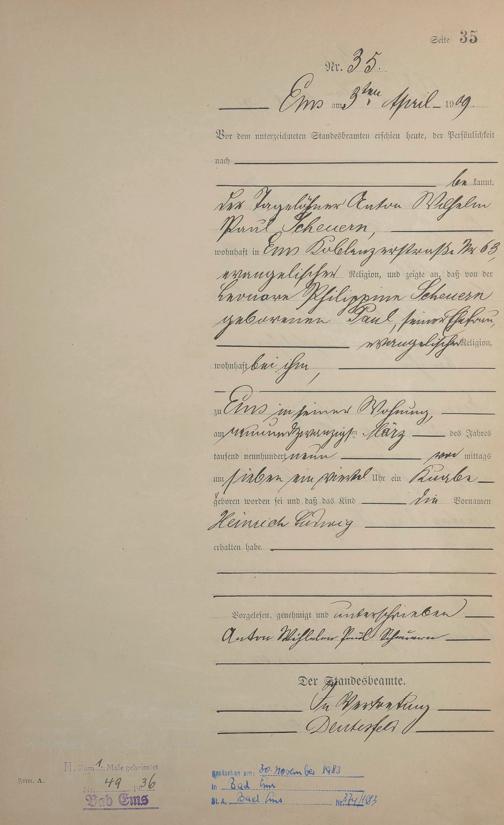 Seite 35
Nr. 35.
Ems am 3ten April 1909
Vor dem unterzeichneten Standesbeamten erschien heute, der Persönlichkeit
nach
be kannt,
der Tagelöhner Anton Wilhelm
Paul Scheuern,
wohnhaft in Ems Koblenzerstraße Nr 63,
evangelischer Religion, und zeigte an, daß von der
Leonore Philippine Scheuern
geborenen Paul, seiner Ehefrau,
evangelischer Religion,
wohnhaft bei ihm,
zu Ems in seiner Wohnung,
am März des Jahres
tausend neunhundert neun vor mittags
um sieben ein viertel Uhr ein Knabe
geboren worden sei und daß das Kind die Vornamen
Heinrich Ludwig
erhalten habe.
Vorgelesen, genehmigt und unterschrieben
Anton Wilhelm Paul Scheuern
Der Standesbeamte.
In Vertretung
Form. A.
H. 1. Male geheiratet
Nr. 49 36
Bad Ems
Gestorben am: 30. November 1983
in Bad Ems
St. A. Bad Ems Nr.